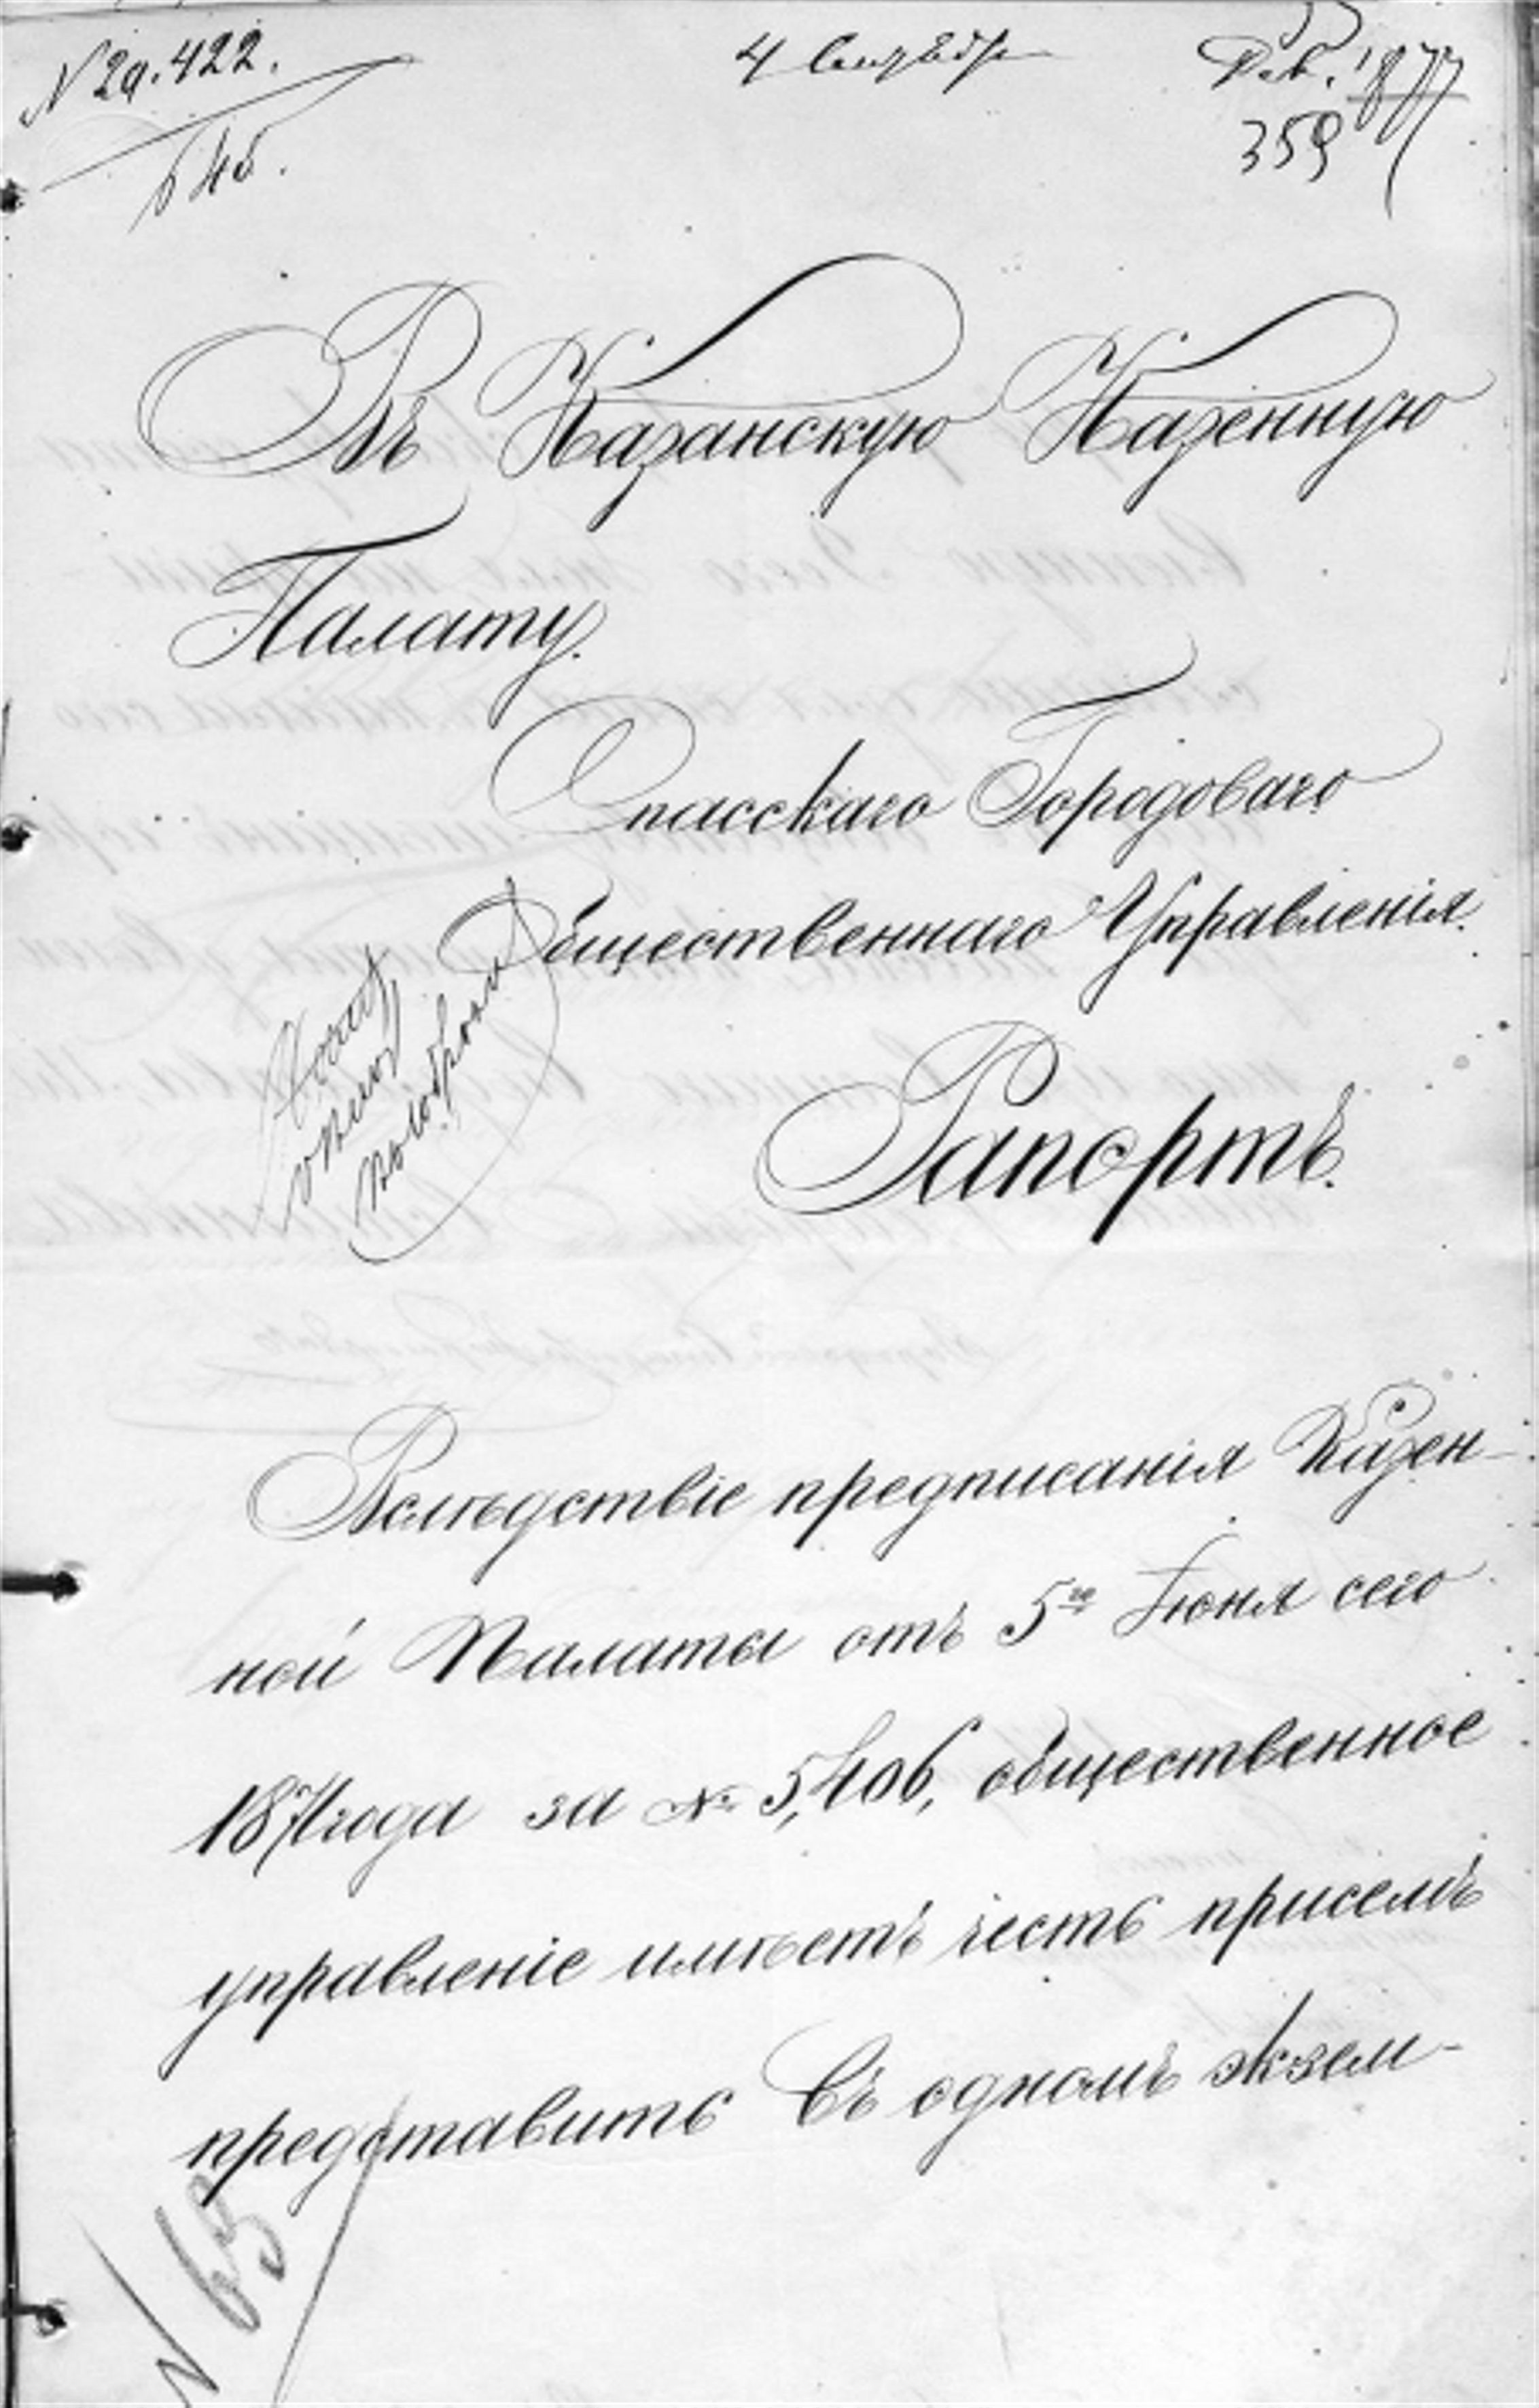 N 29.422.
4 Сентября
Рев. 1877
645.
359
Въ Казанскую Казенную
Палату.
Спасскаго Городоваго
Общественнаго Управленія.
Рапортъ.
Вслѣдствіе предписанія Казен-
ной Палаты отъ 5го Іюня сего
1874 года за № 5,406, общественное
управленіе имѣетъ честь присемъ
представить въ одномъ экзем-
N 65